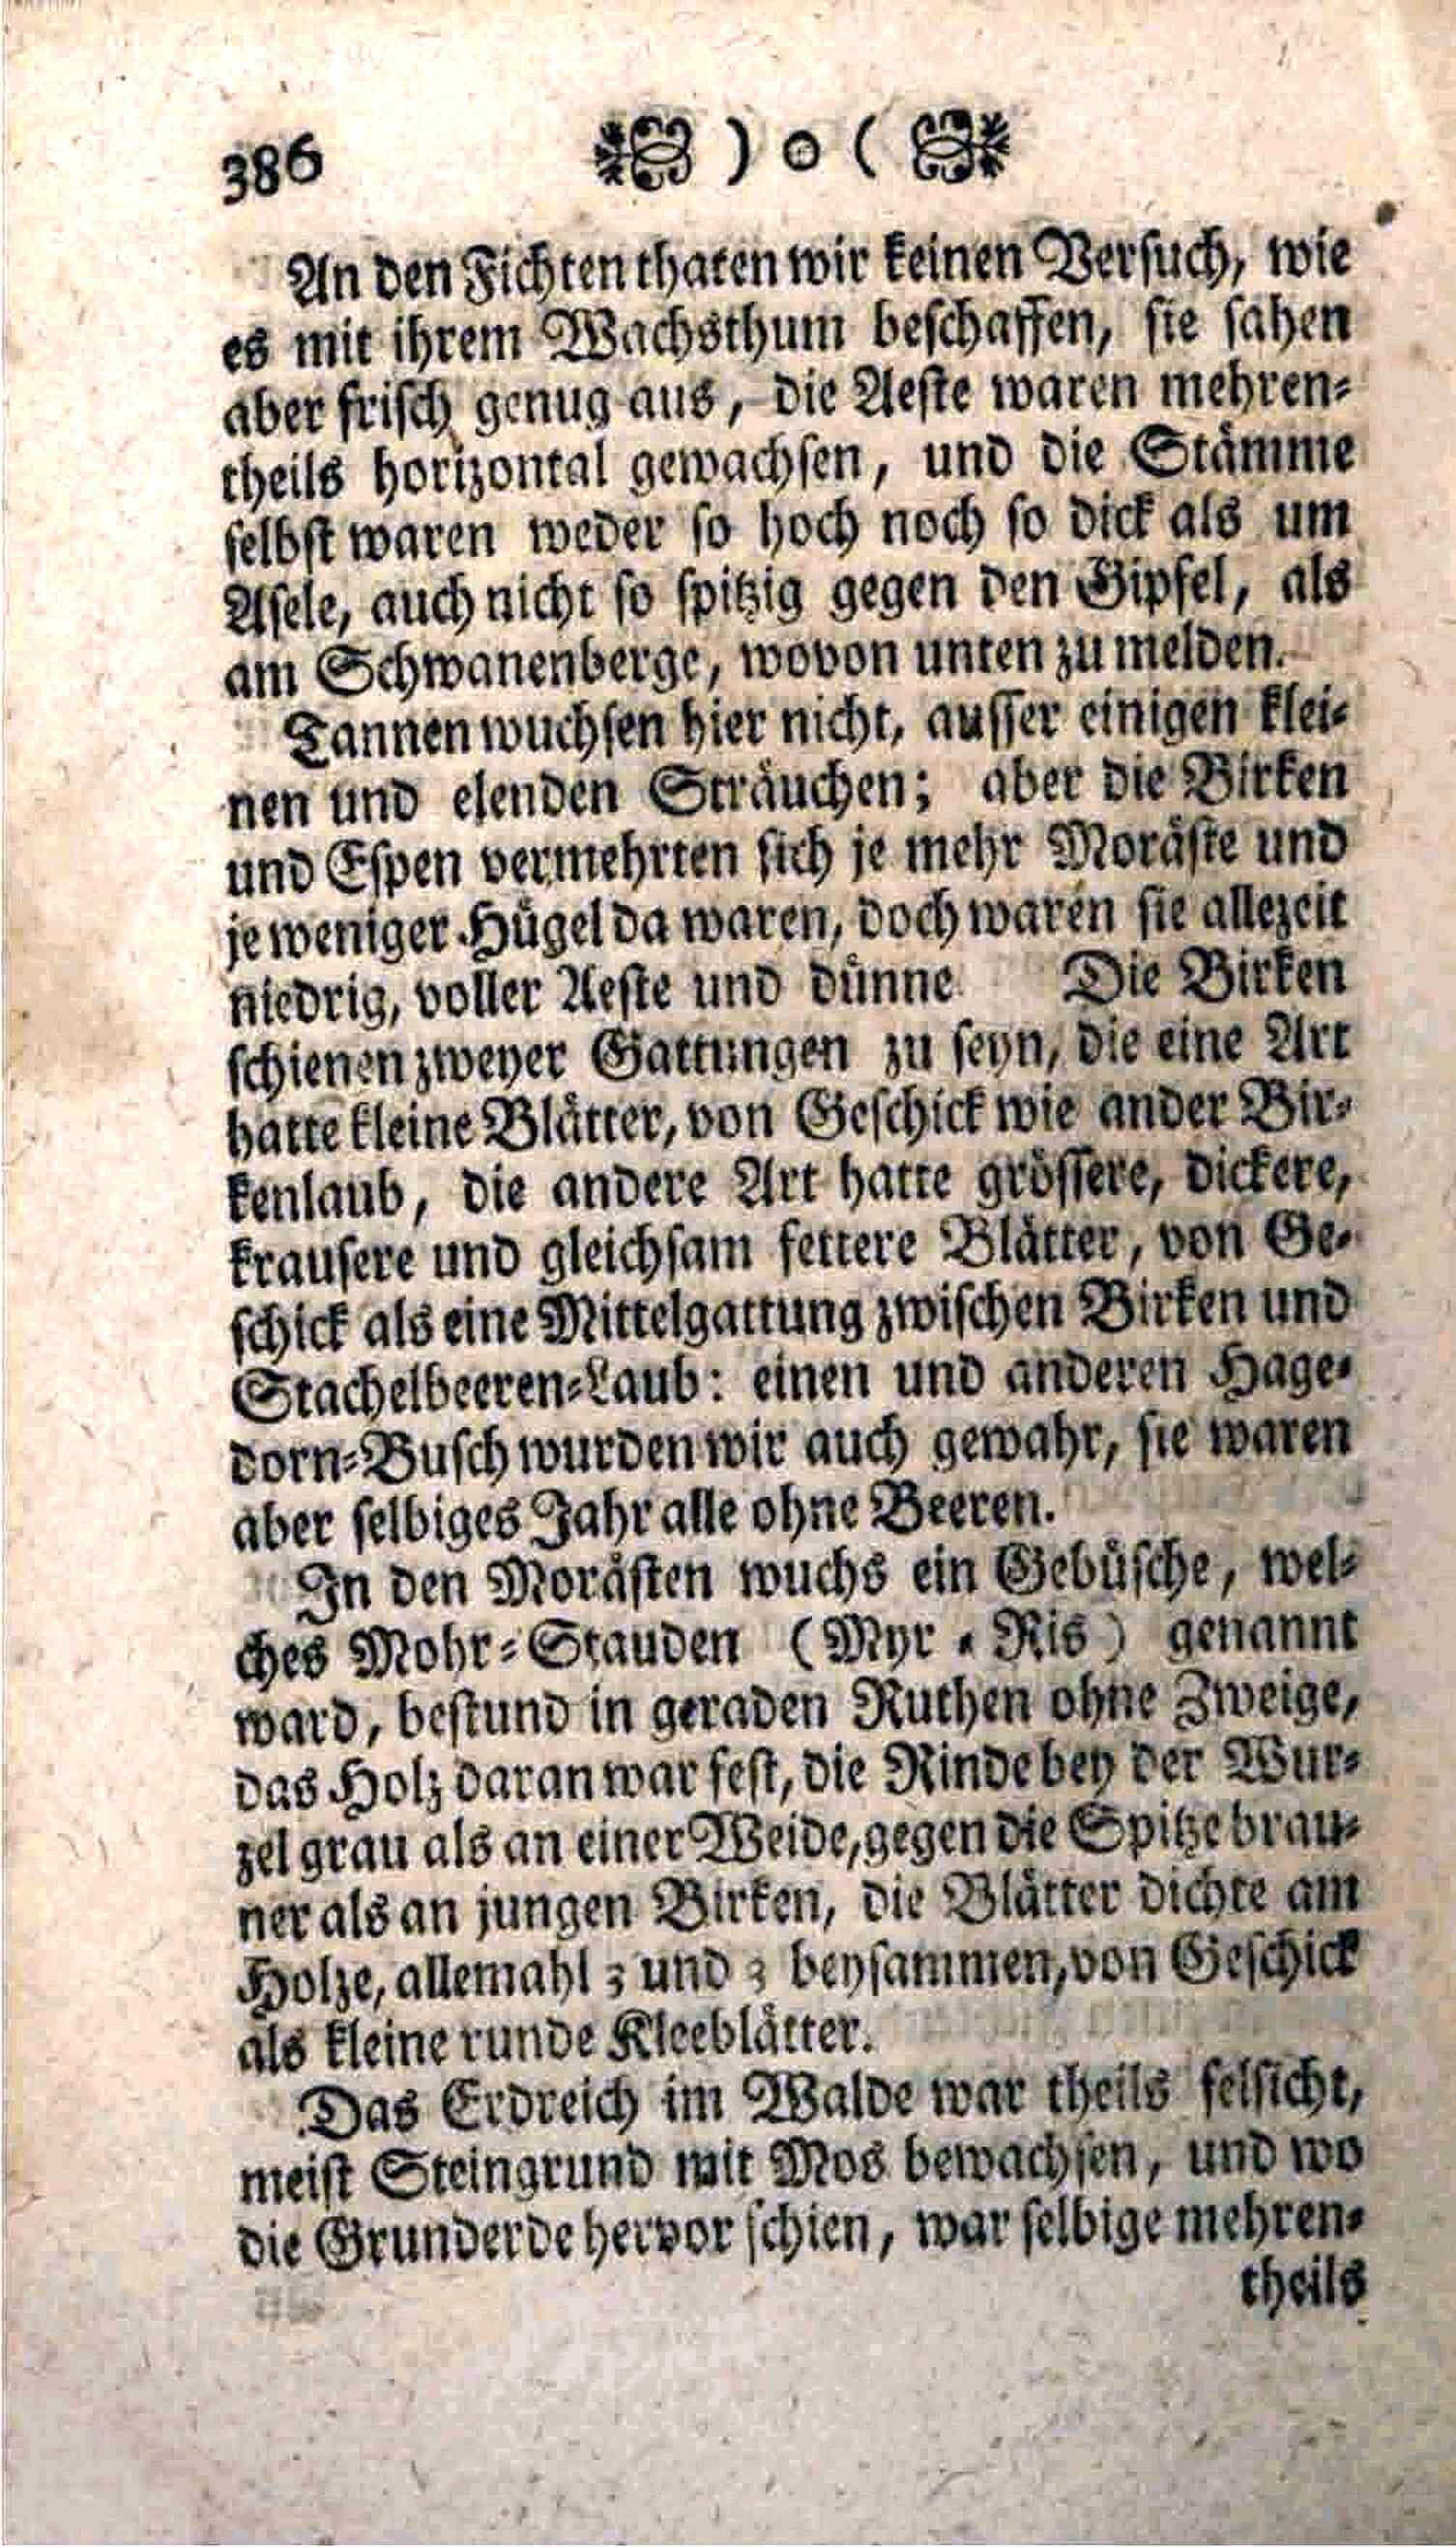 386 ) o (
An den Fichten thaten wir keinen Versuch, wie
es mit ihrem Wachsthum beschaffen, sie sahen
aber frisch genug aus, die Aeste waren mehren-
theils horizontal gewachsen, und die Stämme
selbst waren weder so hoch noch so dick als um
Asele, auch nicht so spitzig gegen den Gipfel, als
am Schwanenberge, wovon unten zu melden.
Tannen wuchsen hier nicht, ausser einigen klei-
nen und elenden Sträuchen; aber die Birken
und Espen vermehrten sich je mehr Moräste und
je weniger Hügel da waren, doch waren sie allezeit
niedrig, voller Aeste und dünne Die Birken
schienen zweyer Gattungen zu seyn, die eine Art
hatte kleine Blätter, von Geschick wie ander Bir-
kenlaub, die andere Art hatte grössere, dickere,
krausere und gleichsam fettere Blätter, von Ge-
schick als eine Mittelgattung zwischen Birken und
Stachelbeeren-Laub: einen und anderen Hage-
dorn-Busch wurden wir auch gewahr, sie waren
aber selbiges Jahr alle ohne Beeren.
In den Morästen wuchs ein Gebüsche, wel-
ches Mohr-Stauden (Myr-Ris) genannt
ward, bestund in geraden Ruthen ohne Zweige,
das Holz daran war fest, die Rinde bey der Wur-
zel grau als an einer Weide, gegen die Spitze brau-
ner als an jungen Birken, die Blätter dichte am
Holze, allemahl 3 und 3 beysammen, von Geschick
als kleine runde Kleeblätter.
Das Erdreich im Walde war theils felsicht,
meist Steingrund mit Mos bewachsen, und wo
die Grunderde hervor schien, war selbige mehren-
theils